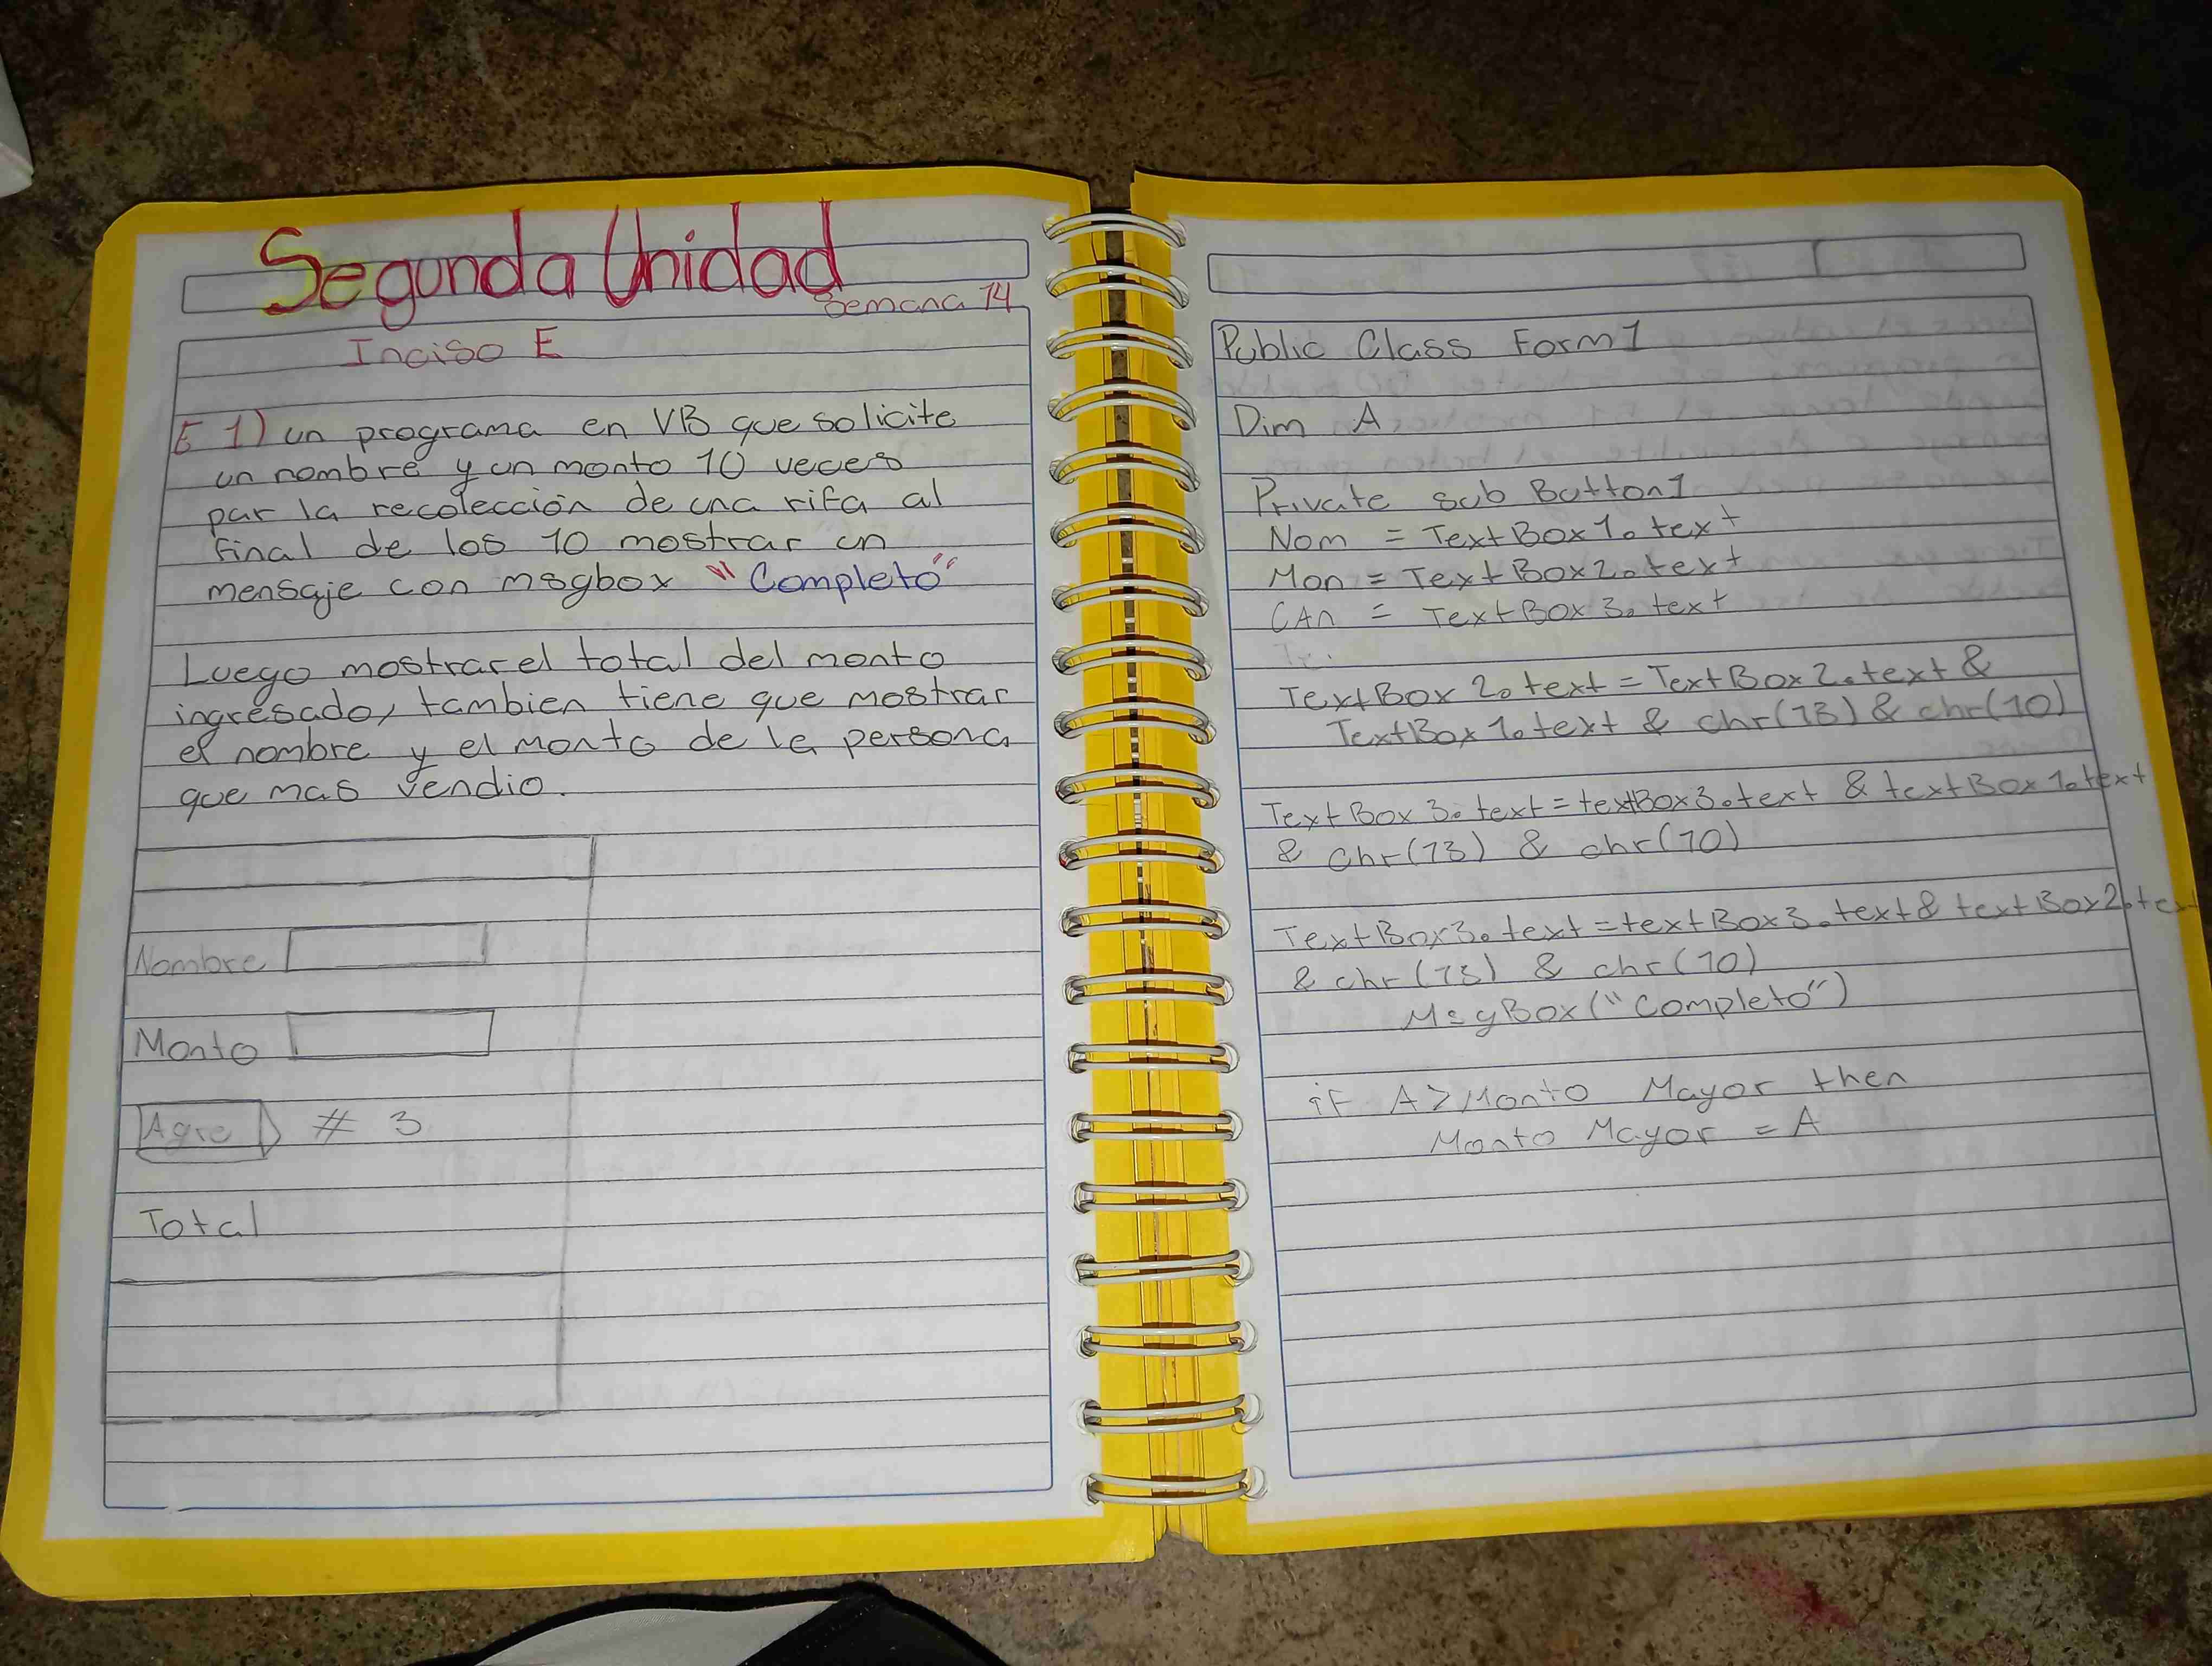 Segunda Unidad
Semana 14
Inciso E
E 1) un programa en VB que solicite
un nombre y un monto 10 veces
par la recolección de una rifa al
final de los 10 mostrar un
mensaje con msgbox "Completo"
Luego mostrar el total del monto
ingresado, tambien tiene que mostrar
el nombre y el monto de la persona
que mas vendio.
Nombre
Monto
Agre # 3
Total
Public Class Form1
Dim A
Private sub Button1
Nom = TextBox1.text
Mon = TextBox2.text
CAn = TextBox3.text
TextBox2.text = TextBox2.text &
TextBox1.text & chr(13) & chr(10)
TextBox3.text = textBox3.text & textBox1.text
& chr(13) & chr(10)
TextBox3.text = textBox3.text & textBox2.text
& chr(13) & chr(10)
MsgBox("Completo")
if A > Monto Mayor then
Monto Mayor = A